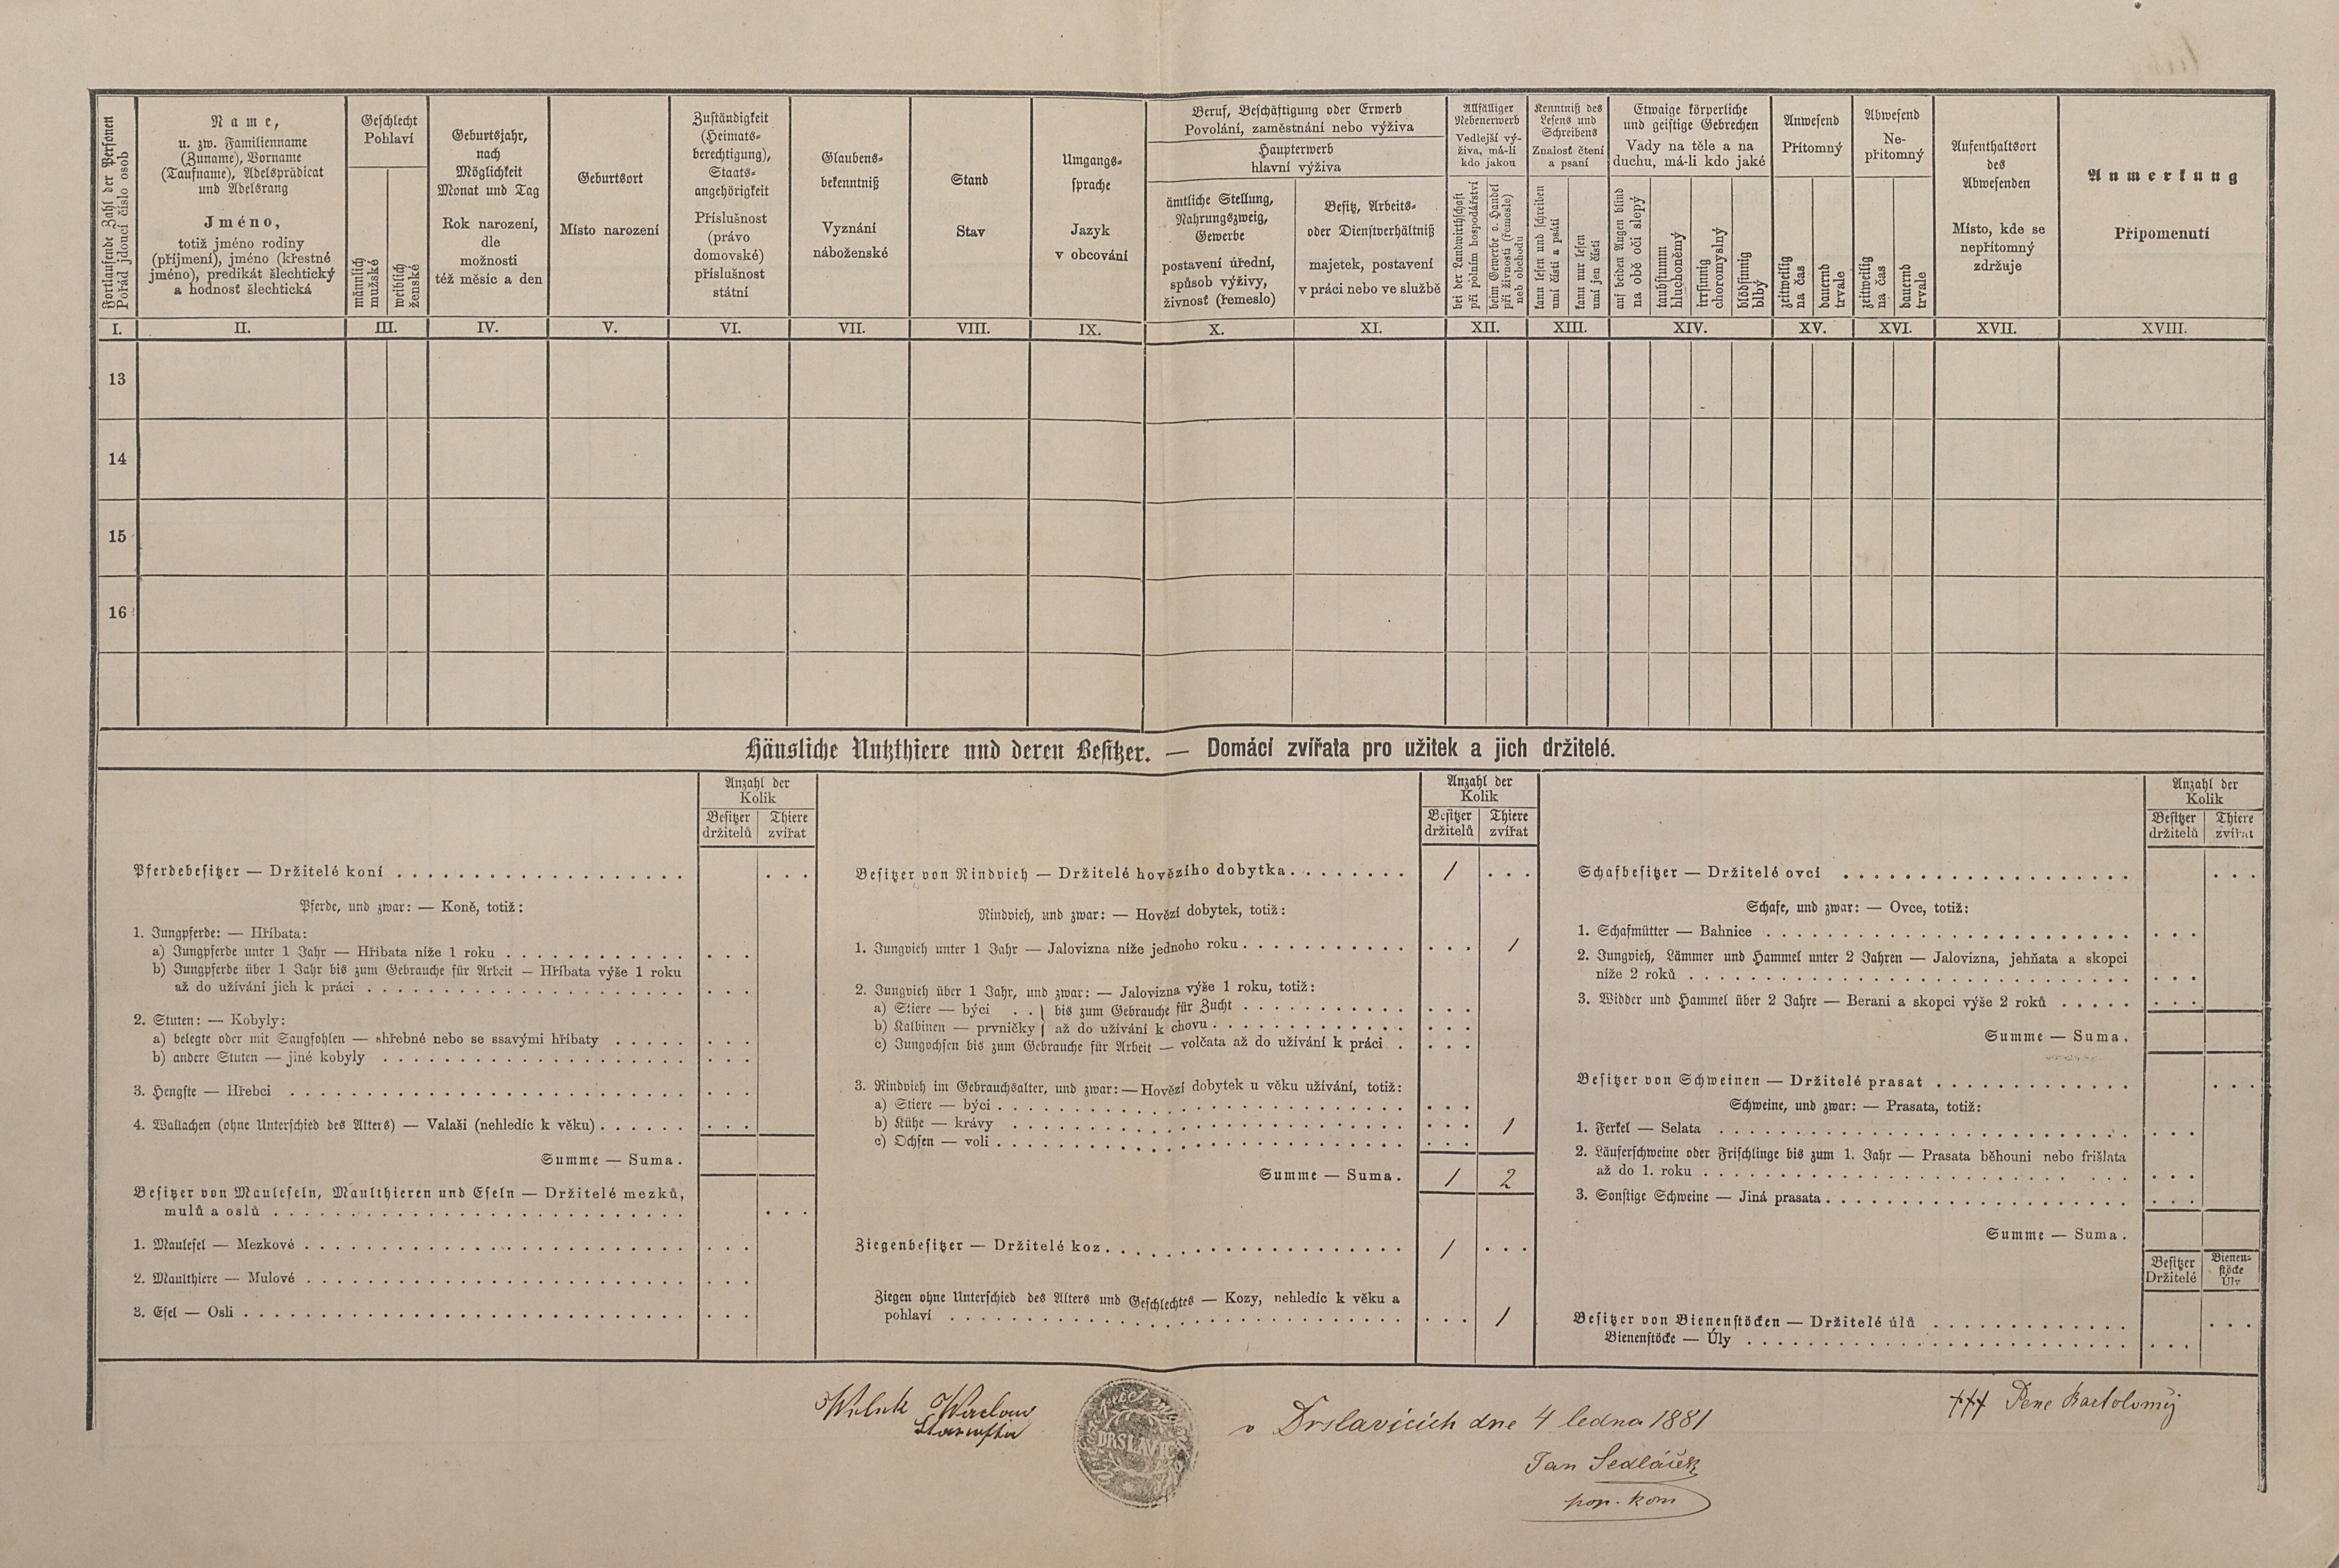 Fortlaufende Zahl der Personen
Pořád jdoucí číslo osob
Name,
u. zw. Familienname
(Zuname), Vorname
(Taufname), Adelsprädicat
und Adelsrang
Jméno,
totiž jméno rodiny
(příjmení), jméno (křestné
jméno), predikát šlechtický
a hodnosť šlechtická
Geschlecht
Pohlaví
männlich
mužské
weiblich
ženské
Geburtsjahr,
nach
Möglichkeit
Monat und Tag
Rok narození,
dle
možnosti
též měsíc a den
Geburtsort
Místo narození
Zuständigkeit
(Heimats-
berechtigung),
Staats-
angehörigkeit
Příslušnost
(právo
domovské)
příslušnost
státní
Glaubens-
bekenntniß
Vyznání
náboženské
Stand
Stav
Umgangs-
sprache
Jazyk
v obcování
Beruf, Beschäftigung oder Erwerb
Povolání, zaměstnání nebo výživa
Haupterwerb
hlavní výživa
ämtliche Stellung,
Nahrungszweig,
Gewerbe
postavení úřední,
spůsob výživy,
živnosť (řemeslo)
Besitz, Arbeits-
oder Dienstverhältniß
majetek, postavení
v práci nebo ve službě
Allfälliger
Nebenerwerb
Vedlejší vý-
živa, má-li
kdo jakou
bei der Landwirthschaft
při polním hospodářství
beim Gewerbe o. Handel
při živnosti (řemesle)
neb obchodu
Kenntniß des
Lesens und
Schreibens
Znalosť čtení
a psaní
kann lesen und schreiben
umí čísti a psáti
kann nur lesen
umí jen čísti
Etwaige körperliche
und geistige Gebrechen
Vady na těle a na
duchu, má-li kdo jaké
auf beiden Augen blind
na obě oči slepý
taubstumm
hluchoněmý
irrsinnig
choromyslný
blödsinnig
blbý
Anwesend
Přítomný
zeitweilig
na čas
dauernd
trvale
Abwesend
Ne-
přítomný
zeitweilig
na čas
dauernd
trvale
Aufenthaltsort
des
Abwesenden
Místo, kde se
nepřítomný
zdržuje
Anmerkung
Připomenutí
I. II. III. IV. V. VI. VII. VIII. IX. X. XI. XII. XIII. XIV. XV. XVI. XVII. XVIII.
13
14
15
16
Häusliche Nutzthiere und deren Besitzer. — Domácí zvířata pro užitek a jich držitelé.
Anzahl der
Kolik
Besitzer Thiere
držitelů zvířat
Pferdebesitzer — Držitelé koní
Pferde, und zwar: — Koně, totiž:
1. Jungpferde: — Hříbata:
a) Jungpferde unter 1 Jahr — Hříbata níže 1 roku
b) Jungpferde über 1 Jahr bis zum Gebrauche für Arbeit — Hříbata výše 1 roku
až do užívání jich k práci
2. Stuten: — Kobyly:
a) belegte oder mit Saugfohlen — shřebné nebo se ssavými hříbaty
b) andere Stuten — jiné kobyly
3. Hengste — Hřebci
4. Wallachen (ohne Unterschied des Alters) — Valaši (nehledíc k věku)
Summe — Suma.
Besitzer von Mauleseln, Maulthieren und Eseln — Držitelé mezků,
mulů a oslů
1. Maulesel — Mezkové
2. Maulthiere — Mulové
3. Esel — Osli
Anzahl der
Kolik
Besitzer Thiere
držitelů zvířat
Besitzer von Rindvieh — Držitelé hovězího dobytka 1
Rindvieh, und zwar: — Hovězí dobytek, totiž:
1. Jungvieh unter 1 Jahr — Jalovizna níže jednoho roku 1
2. Jungvieh über 1 Jahr, und zwar: — Jalovizna výše 1 roku, totiž:
a) Stiere — býci . . } bis zum Gebrauche für Zucht
b) Kalbinen — prvničky } až do užívání k chovu
c) Jungochsen bis zum Gebrauche für Arbeit — volčata až do užívání k práci
3. Rindvieh im Gebrauchsalter, und zwar: — Hovězí dobytek u věku užívání, totiž:
a) Stiere — býci
b) Kühe — krávy 1
c) Ochsen — voli
Summe — Suma. 1 2
Ziegenbesitzer — Držitelé koz 1
Ziegen ohne Unterschied des Alters und Geschlechtes — Kozy, nehledíc k věku a
pohlaví 1
Anzahl der
Kolik
Besitzer Thiere
držitelů zvířat
Schafbesitzer — Držitelé ovcí
Schafe, und zwar: — Ovce, totiž:
1. Schafmütter — Bahnice
2. Jungvieh, Lämmer und Hammel unter 2 Jahren — Jalovizna, jehňata a skopci
níže 2 roků
3. Widder und Hammel über 2 Jahre — Berani a skopci výše 2 roků
Summe — Suma.
Besitzer von Schweinen — Držitelé prasat
Schweine, und zwar: — Prasata, totiž:
1. Ferkel — Selata
2. Läuferschweine oder Frischlinge bis zum 1. Jahr — Prasata běhouni nebo frišlata
až do 1. roku
3. Sonstige Schweine — Jiná prasata
Summe — Suma.
Besitzer
Držitelé
Bienen-
stöcke
Úly
Besitzer von Bienenstöcken — Držitelé úlů
Bienenstöcke — Úly
Wacław
Starosta
DRSLAVIC
v Drslavicích dne 4 ledna 1881
Jan Sedláček
pop. kom
+++ Pene Bartoloměj